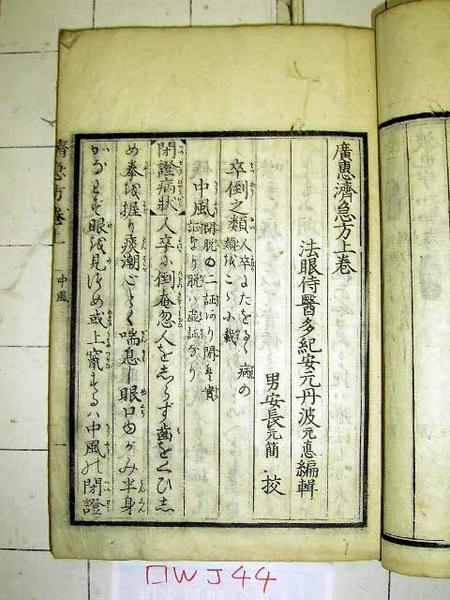 廣惠濟急方上卷
法眼侍醫多紀安元丹波元悳編輯
男安長元簡 校
卒倒之類 人卒にたをるゝ病の
類をこゝに載
中風 閉脱の二証あり閉は實
証なり脱は虚証なり
閉證病状 人卒に倒奄忽人をしらず齒をくひし
め拳を握り痰潮ごとく喘息し眼口ゆがみ半身
かなはず眼を見つめ或上竄するハ中風の閉證
濟急方卷上
中風
口WJ44